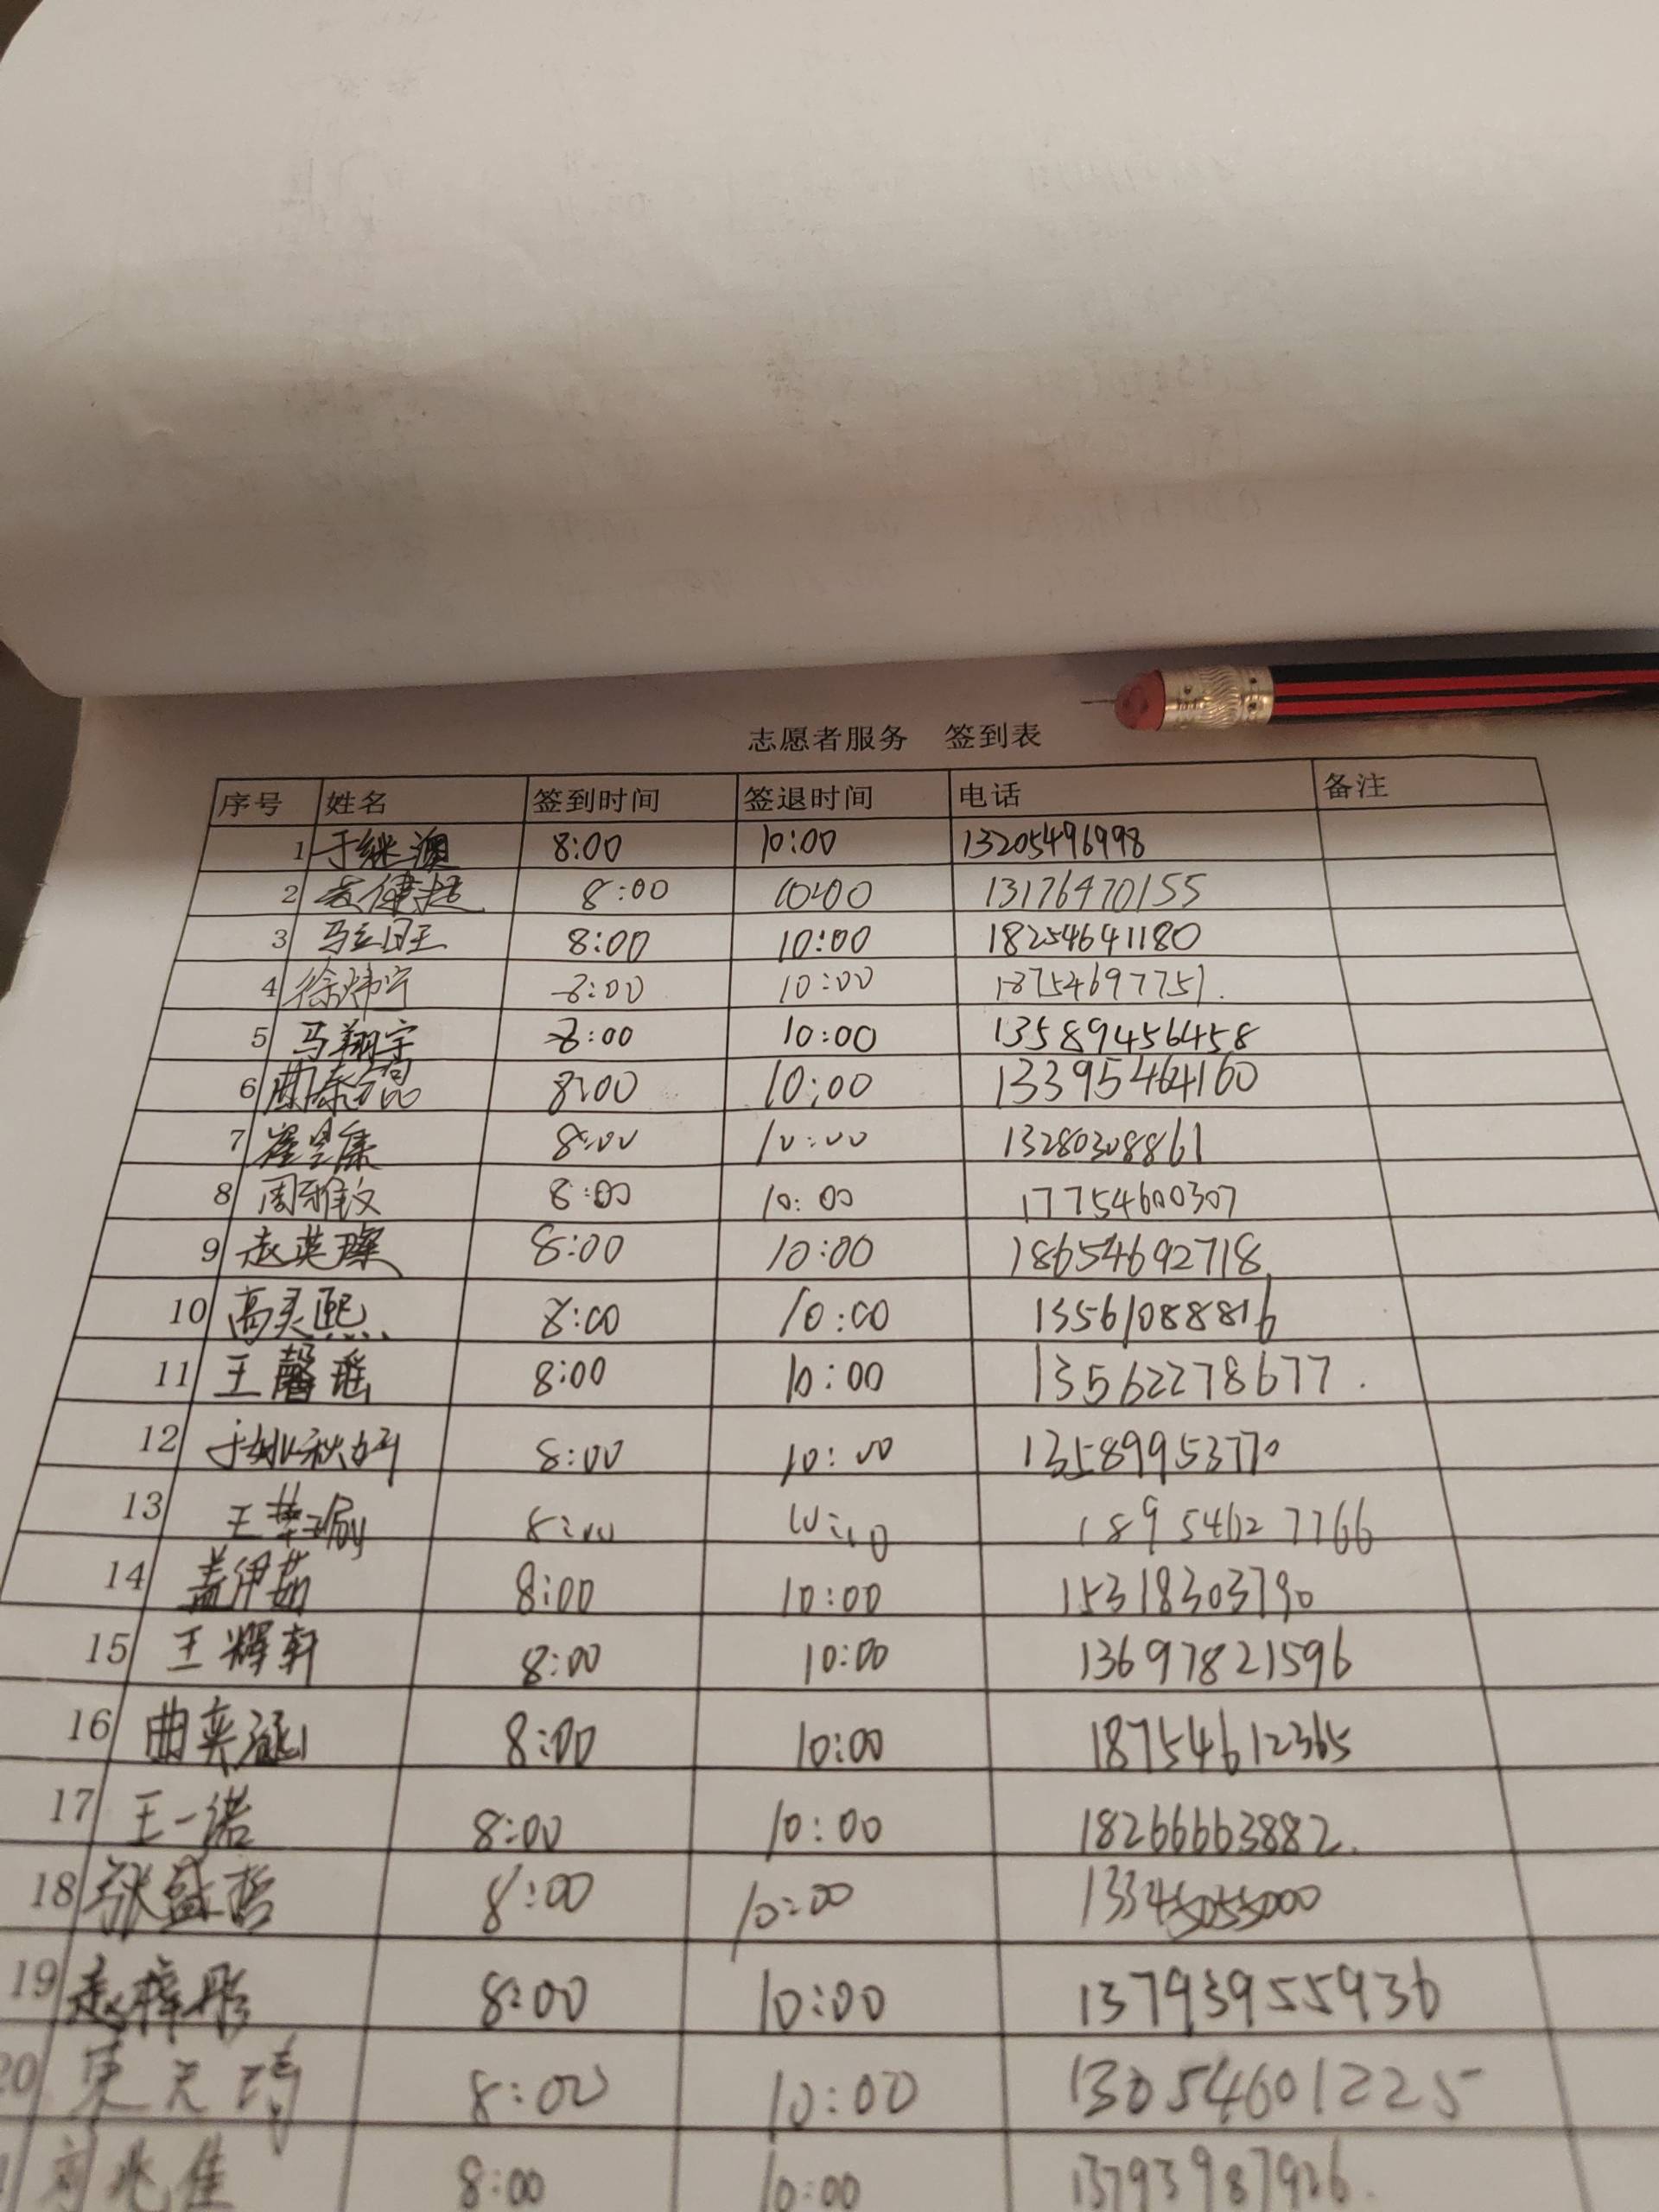 志愿者服务 签到表
序号 姓名 签到时间 签退时间 电话 备注
1 于继澳 8:00 10:00 13205496998
2 8:00 10:00 13176470155
3 8:00 10:00 18254641180
4 徐炜宁 8:00 10:00 18754697751.
5 马翔宇 8:00 10:00 13589456458
6 8:00 10:00 13395464160
7 8:00 10:00 13280308861
8 周雅文 8:00 10:00 17754600307
9 赵英璨 8:00 10:00 18654692718
10 高灵熙 8:00 10:00 13561088816
11 王馨瑶 8:00 10:00 13562278677.
12 于姚秋妤 8:00 10:00 13589953770
13 8:00 18954627766
14 盖伊茹 8:00 10:00 15318303790
15 王辉轩 8:00 10:00 13697821596
16 曲奕涵 8:00 10:00 18754612365
17 王一诺 8:00 10:00 18266663882.
18 张盛哲 8:00 10:00 13345055000
19 赵梓彤 8:00 10:00 13793955936
20 8:00 10:00 13054601225
8:00 10:00